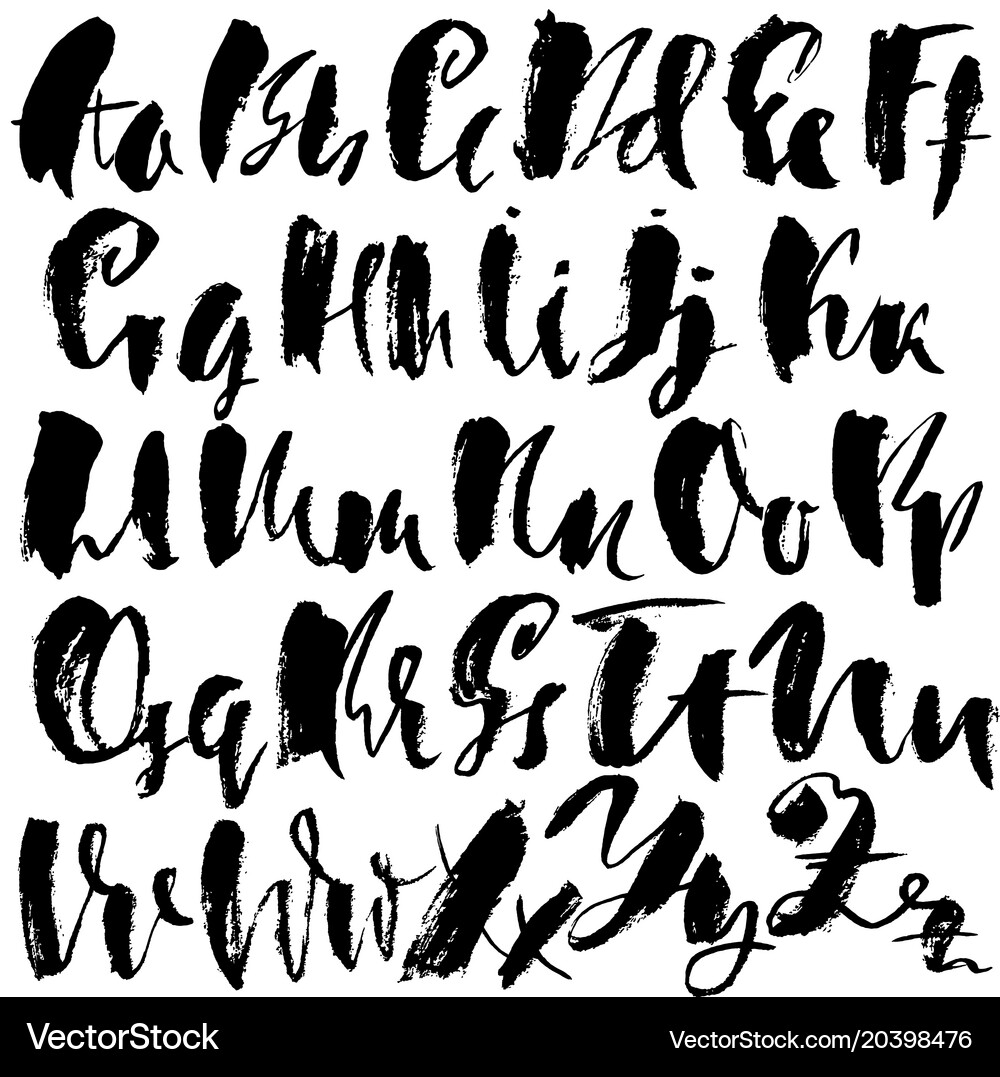 Aa Bb Cc Dd Ee Ff
Gg Hh Ii Jj Kk
Ll Mm Nn Oo Pp
Qq Rr Ss Tt Uu
Vv Ww Xx Yy Zz
VectorStock VectorStock.com/20398476